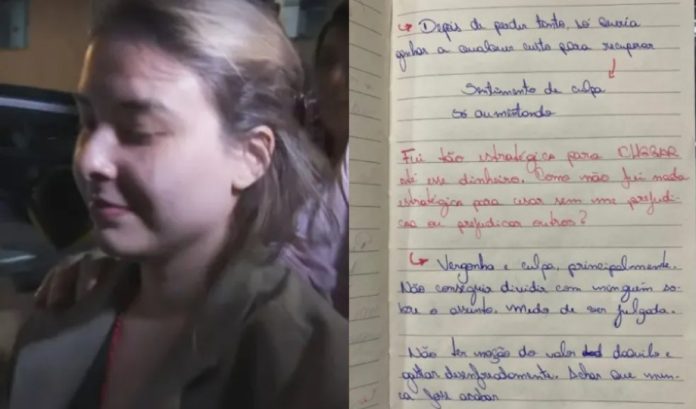 Depois de perder tanto, só queria
ganhar a qualquer custo para recuperar
Sentimento de culpa
só aumentando
Fui tão estratégica para CHEGAR
até esse dinheiro. Como não fui nada
estratégica para usar sem me prejudi-
car ou prejudicar outros?
Vergonha e culpa, principalmente.
Não conseguia dividir com ninguém so-
bre o assunto, medo de ser julgada.
Não ter noção do valor daquilo e
gastar desenfreadamente. Achar que nun-
ca fosse acabar